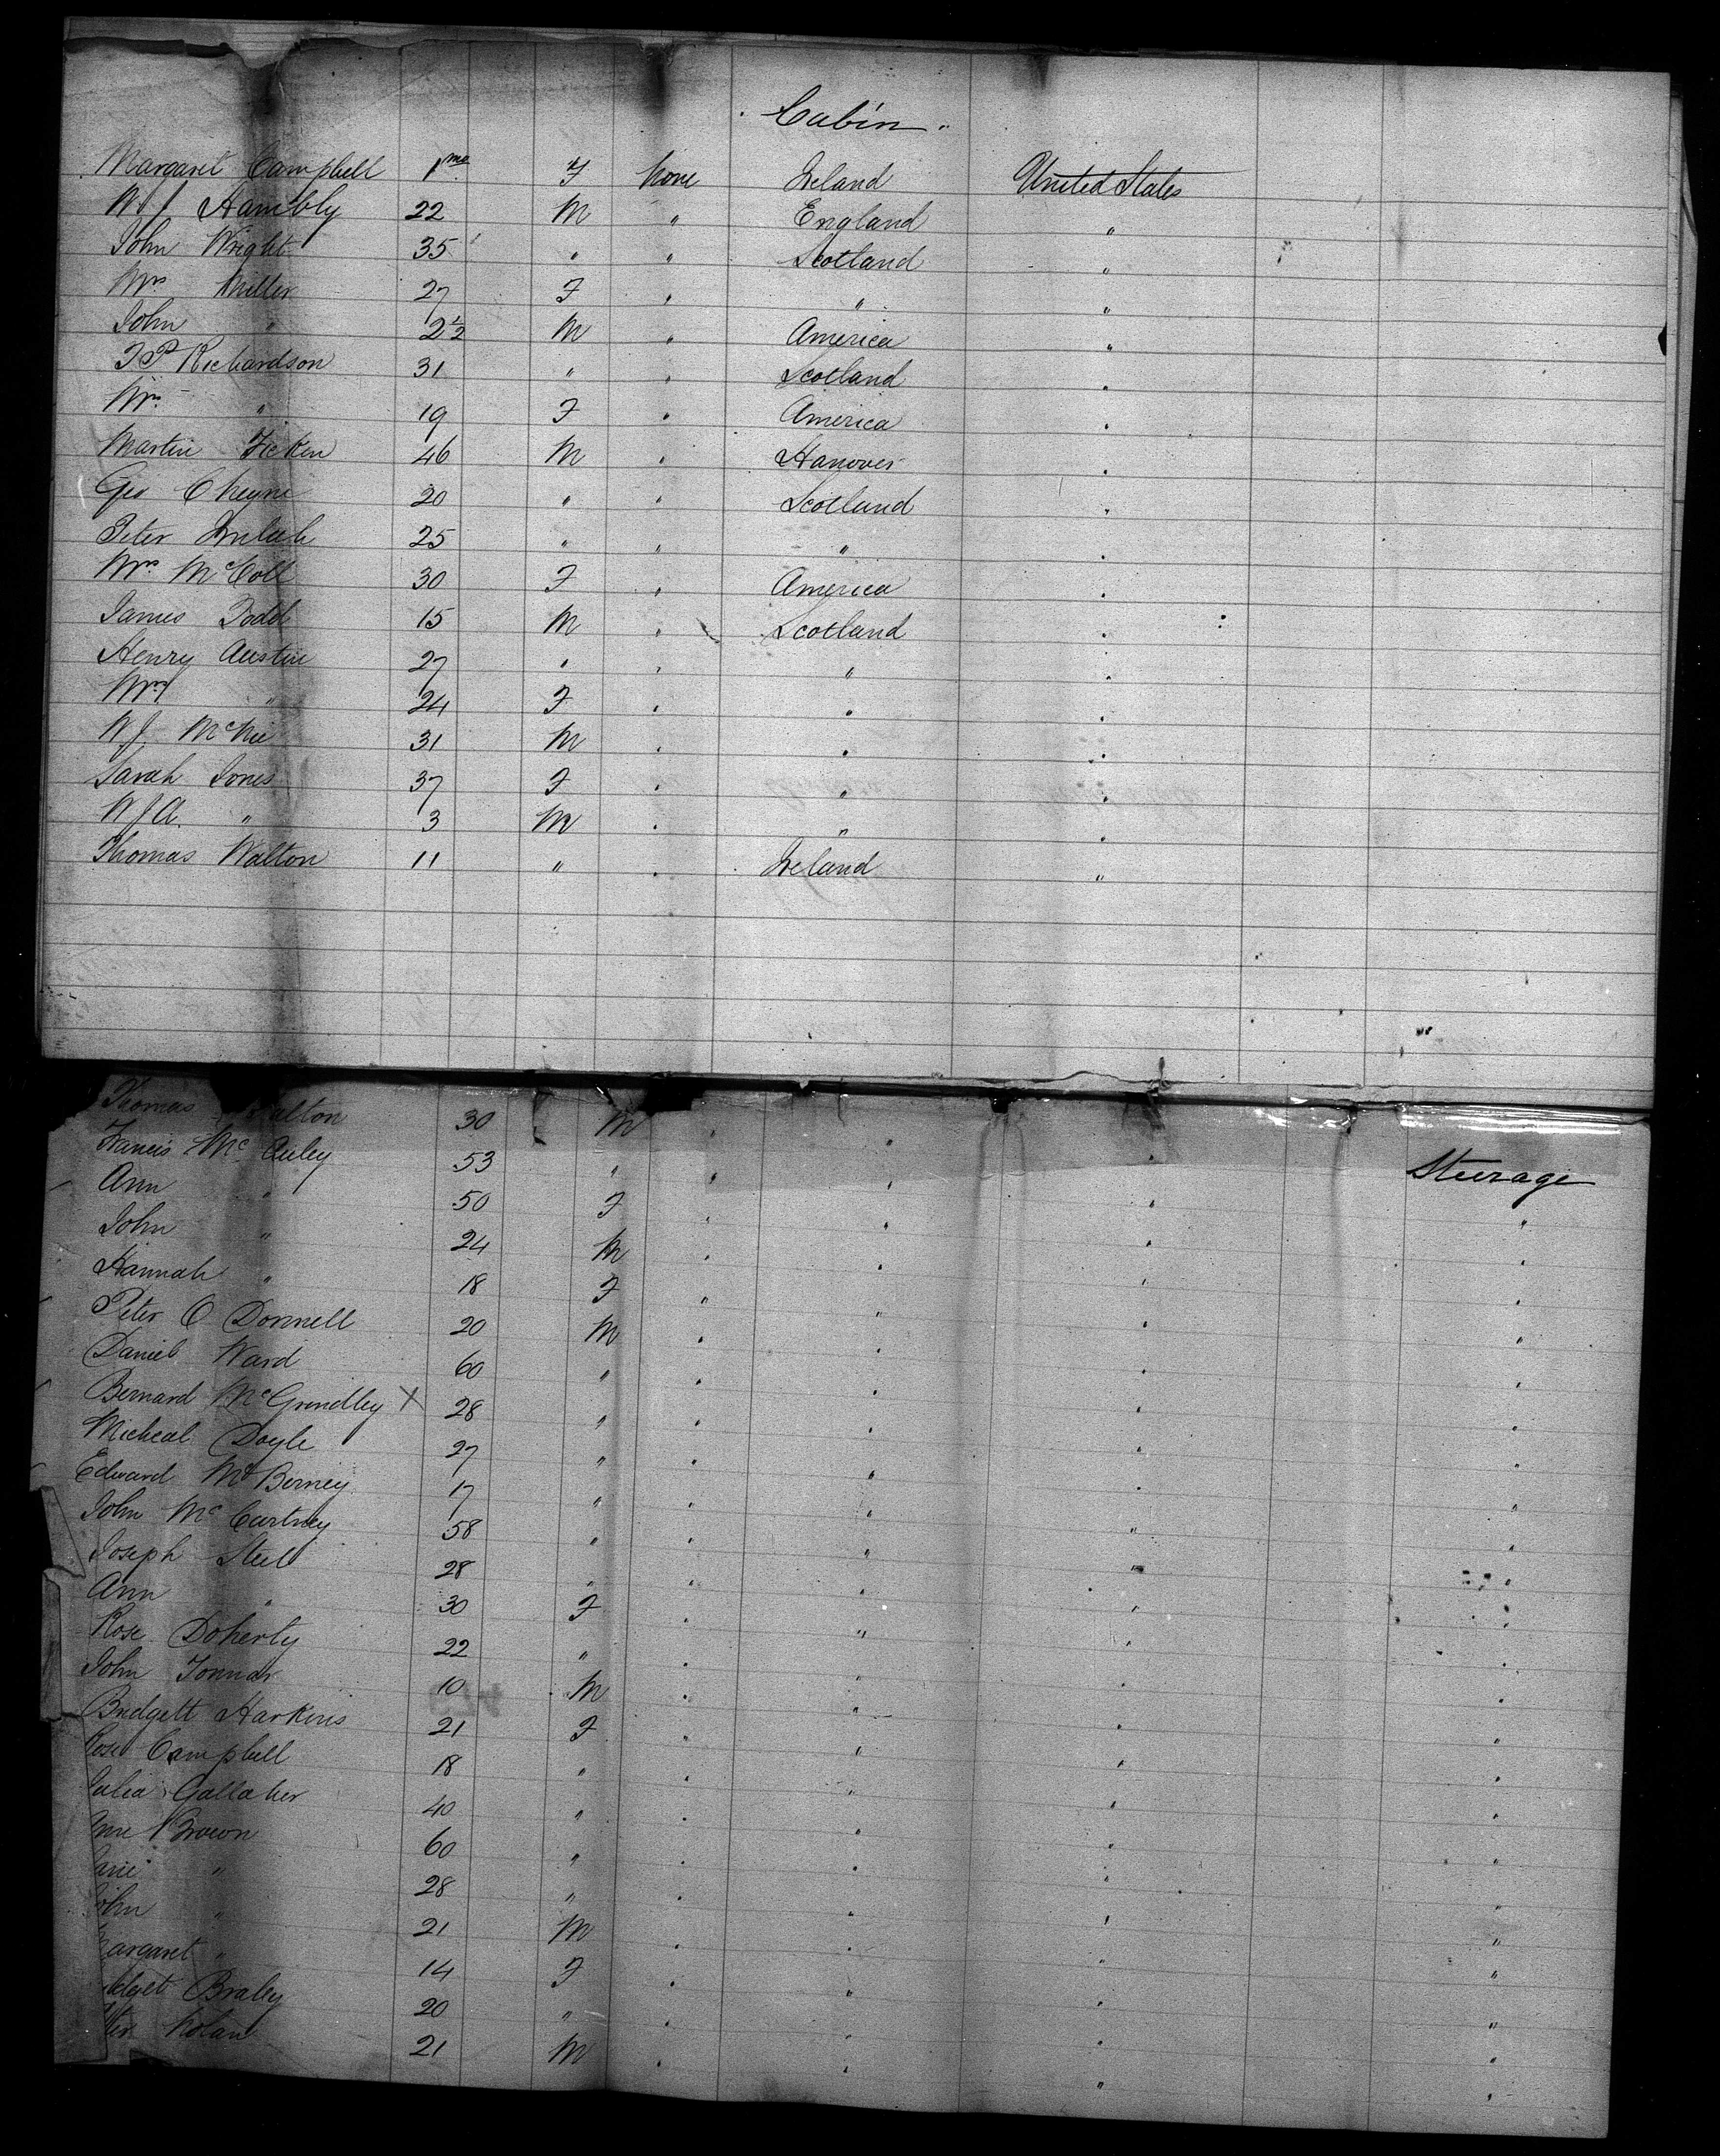 Cabin
Margaret Campbell 1 mo F None Ireland United States
W J Hambly 22 M " England "
John Wright 35 " " Scotland "
Mrs Miller 27 F " " "
John " 2½ M " America "
J P Richardson 31 " " Scotland "
Mrs " 19 F " America "
Martin Ficken 46 M " Hanover "
Geo Cheyne 20 " " Scotland "
Peter 25 " " " "
Mrs McColl 30 F " America "
James Todd 15 M " Scotland "
Henry Austin 27 " " " "
Mrs " 24 F " " "
W J McNee 31 M " " "
Sarah Jones 37 F " " "
W J A " 3 M " " "
Thomas Walton 11 " " Ireland "
Thomas Walton 30 M " " "
Francis McAuley 53 " " " " Steerage
Ann " 50 F " " " "
John " 24 M " " " "
Hannah " 18 F " " " "
Peter O Donnell 20 M " " " "
Daniel Ward 60 " " " " "
Bernard McGrindley X 28 " " " " "
Micheal Doyle 27 " " " " "
Edward McBerney 17 " " " " "
John McCurtney 58 " " " " "
Joseph Steel 28 " " " " "
Ann " 30 F " " " "
Rose Doherty 22 " " " " "
John 10 M " " " "
Bridgett Harkins 21 F " " " "
Rose Campbell 18 " " " " "
Julia Gallaher 40 " " " " "
Brown 60 " " " " "
" 28 " " " " "
John " 21 M " " " "
Margaret " 14 F " " " "
Braley 20 " " " " "
Nolan 21 M " " " "